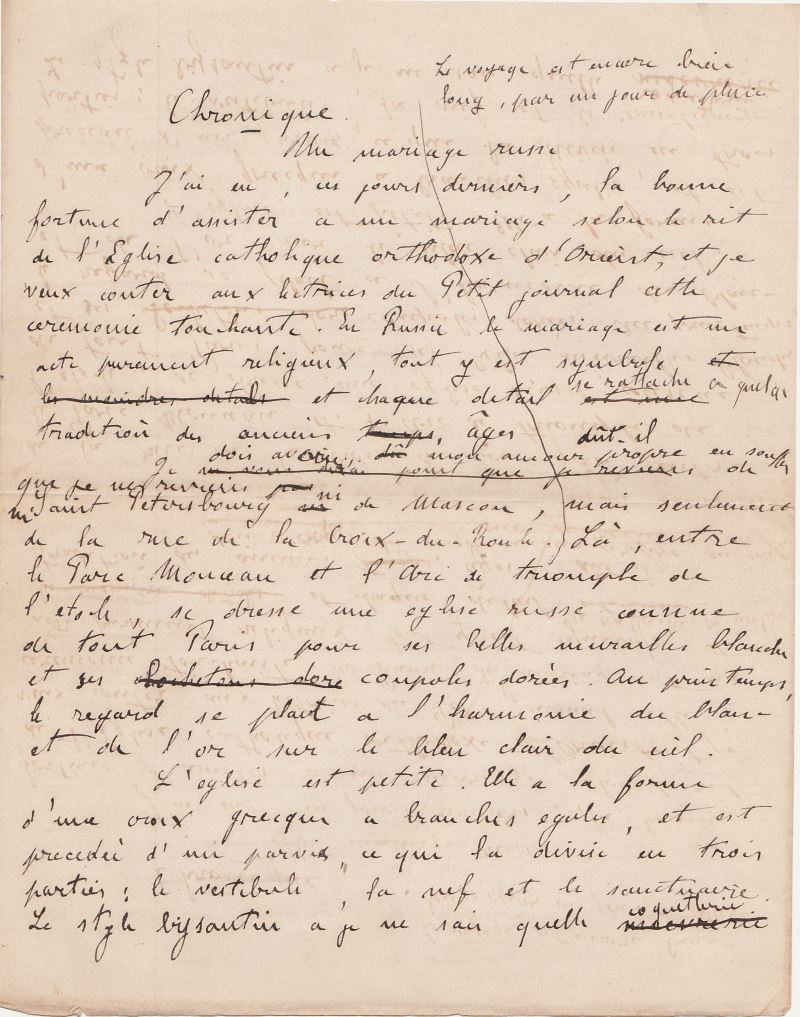 Le voyage est encore bien
long, par un jour de pluie
Chronique.
Un mariage russe
J'ai eu, ces jours derniers, la bonne
fortune d'assister a un mariage selon le rit
de l'Eglise catholique orthodoxe d'Orient, et je
veux conter aux lectrices du Petit journal cette
ceremonie touchante. En Russie le mariage est un
acte purement religieux, tout y est symbole et
les moindres details et chaque detail est une
se rattache a quelque
tradition des anciens temps, âges dût-il
dois avouer, dû mon amour propre en souffrir
Je ne vous dirai point que je reviens de
que je ne reviens pas ni
ni Saint Petersbourg de Moscou, mais seulement
de la rue de la Croix-du-Roule. Là, entre
le Parc Monceau et l'Arc de triomphe de
l'etoile, se dresse une eglise russe connue
de tout Paris pour ses belles murailles blanches
et ses clochetons dore coupoles dorées. Au printemps,
le regard se plait a l'harmonie du blanc
et de l'or sur le bleu clair du ciel.
L'eglise est petite. Elle a la forme
d'une croix grecque a branches egales, et est
precedée d'un parvis, ce qui la divise en trois
parties : le vestibule, la nef et le sanctuaire.
coquetterie
Le style bysantin a je ne sais quelle mievrerie